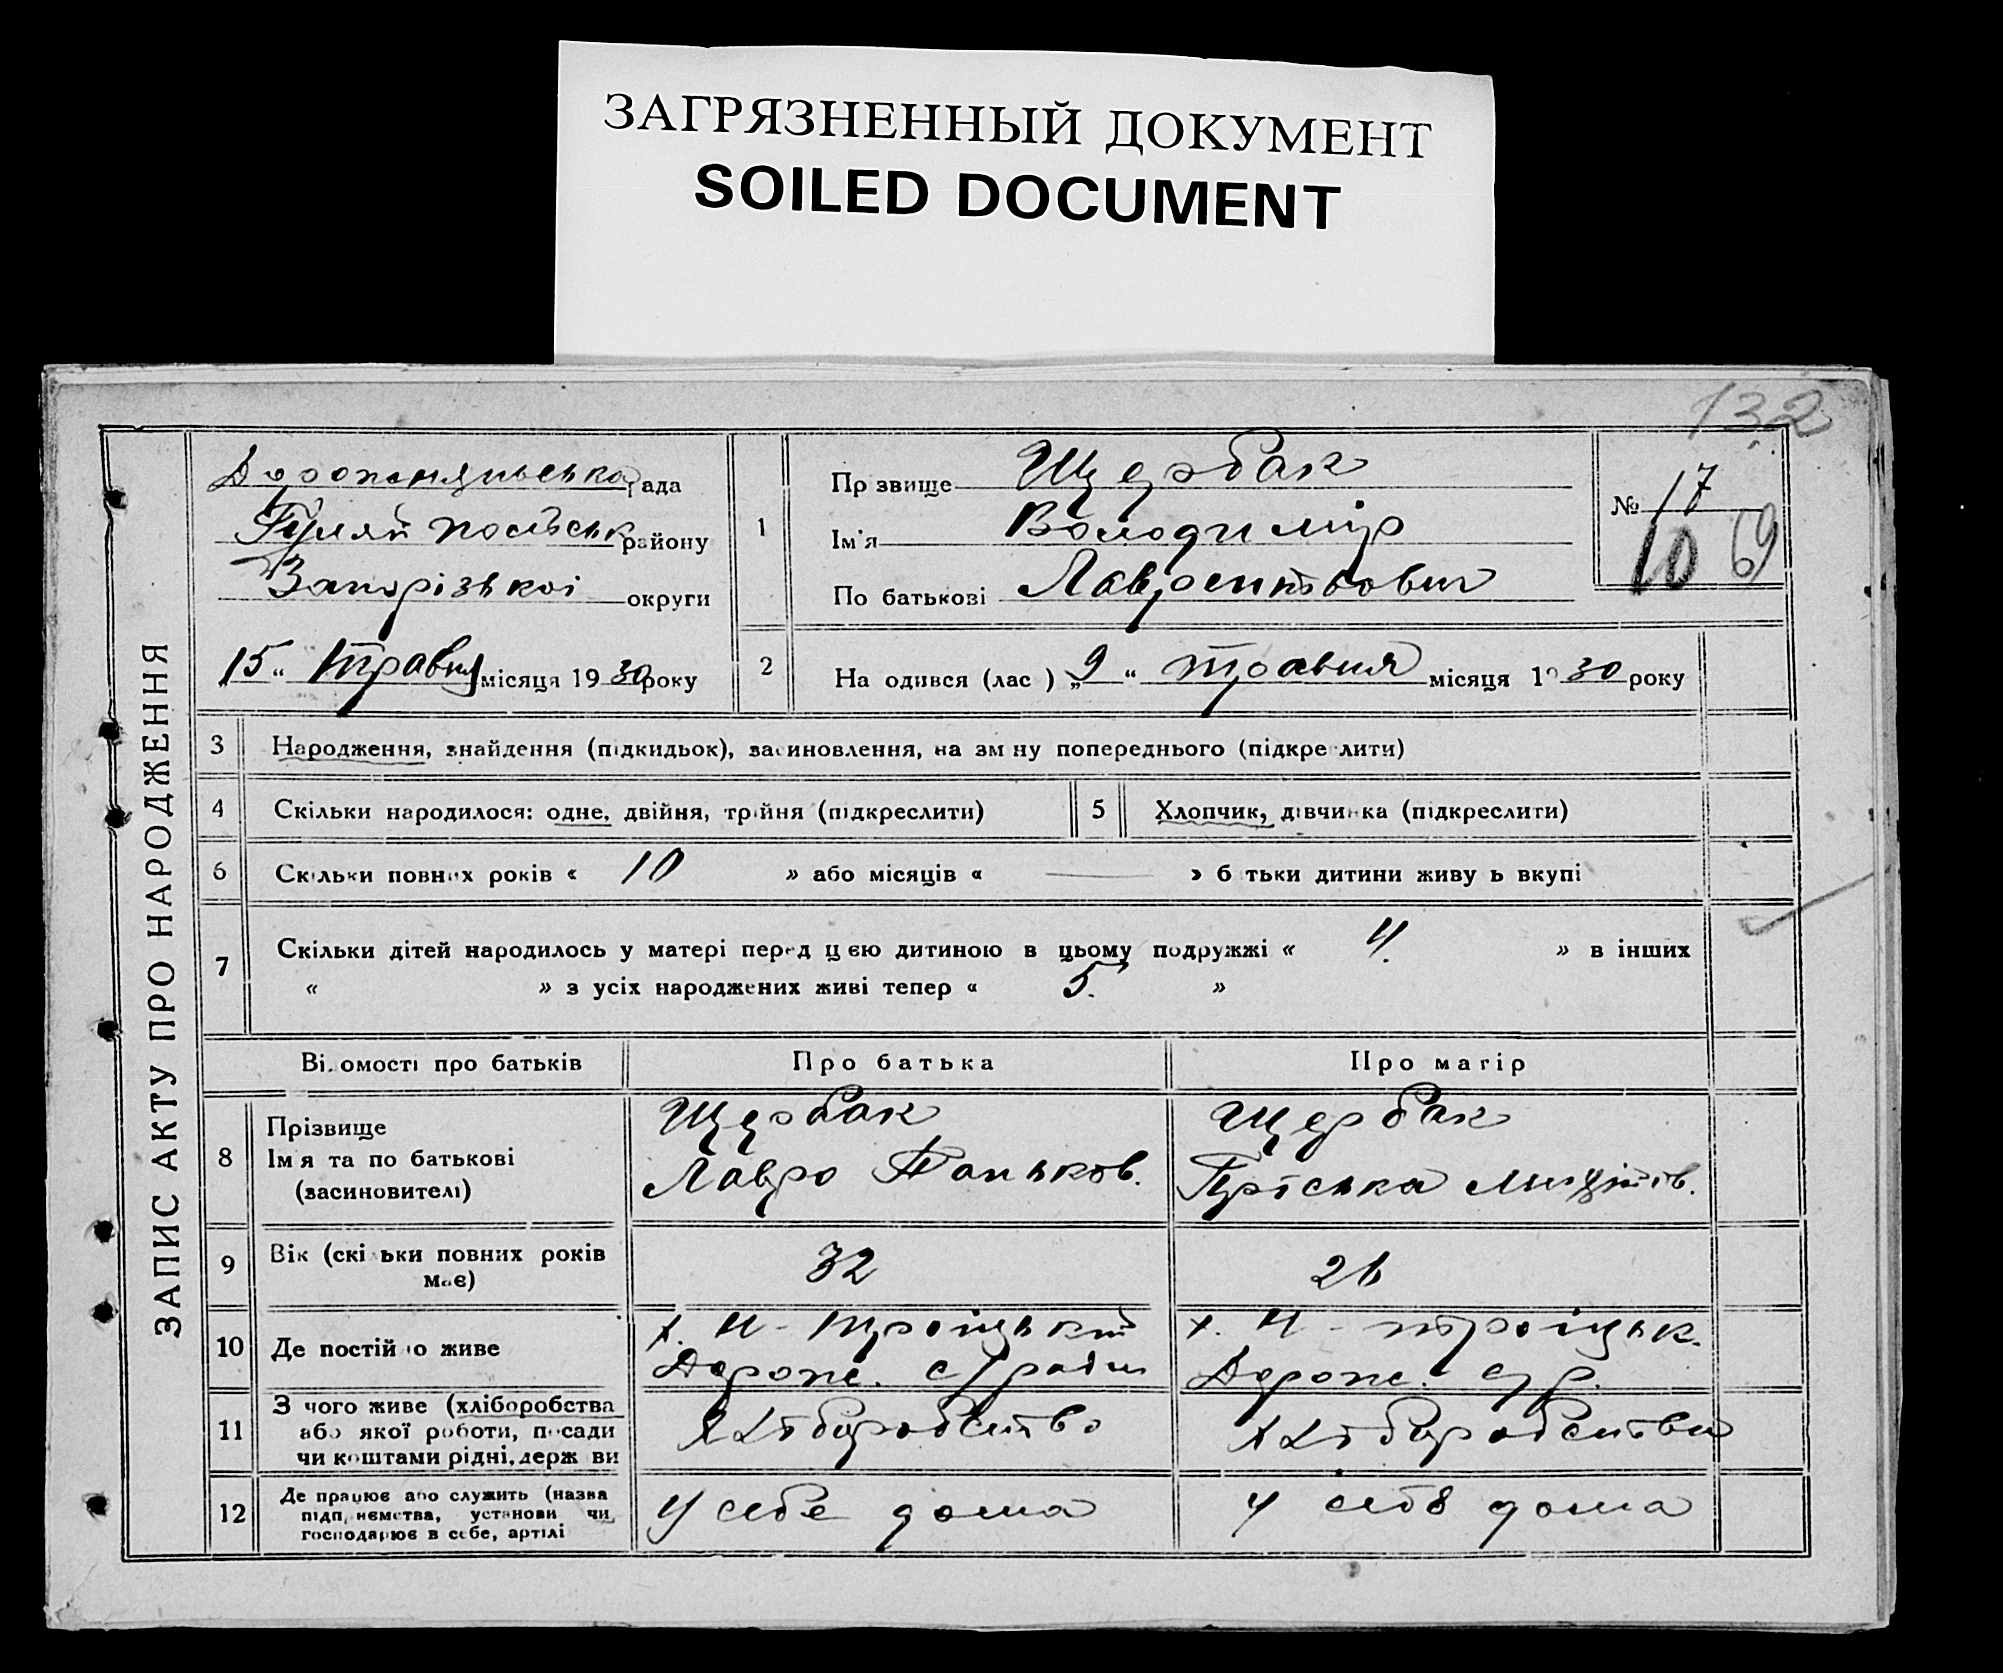 ЗАГРЯЗНЕННЫЙ ДОКУМЕНТ
SOILED DOCUMENT
132
ЗАПИС АКТУ ПРО НАРОДЖЕННЯ
рада
Гуляй польськ району
Запорізької округи
15 " травня місяця 1930 року
1
Прізвище Щербак
Ім'я Володимір
По батькові Лаврентьович
№ 17
10 69
2
Народився (лась) „9 " травня місяця 1930 року
3 Народження, знайдення (підкидьок), засиновлення, на зміну попереднього (підкреслити)
4 Скільки народилося: одне, двійня, трійня (підкреслити)
5 Хлопчик, дівчинка (підкреслити)
6 Скільки повних років « 10 » або місяців « — » батьки дитини живуть вкупі
7 Скільки дітей народилось у матері перед цією дитиною в цьому подружжі « 4. » в інших
« » з усіх народжених живі тепер « 5. »
Відомості про батьків
Про батька
Про матір
8 Прізвище
Ім'я та по батькові
(засиновителі)
Щербак
Лавро Паньков.
Щербак
Пріська
9 Вік (скільки повних років
має)
32
26
10 Де постійно живе
х. Н-Троіцький
Дорож. с/ради
х. Н-троіцьк.
Дорож. с/р.
11 З чого живе (хліборобства
або якої роботи, посади
чи коштами рідні, держави
Хліборобство
Хліборобства
12 Де працює або служить (назва
підприємства, установи чи
господарює в себе, артілі
У себе дома
У себе дома